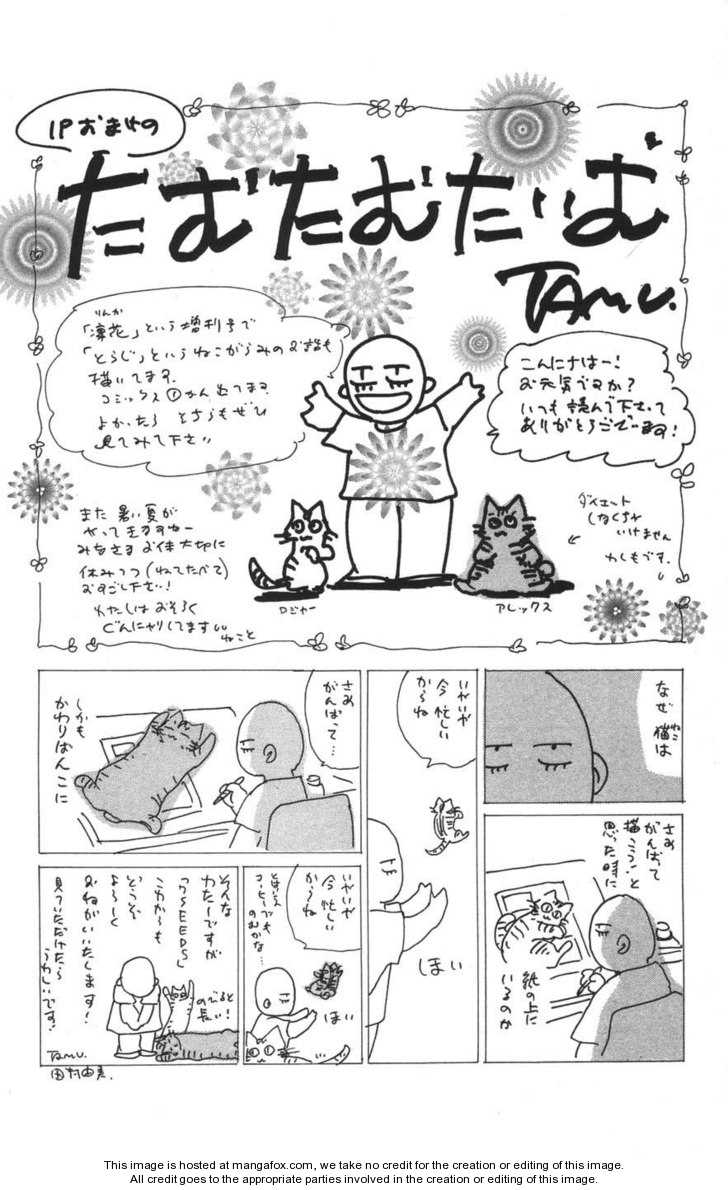 1Pおまけの
たむたむたいむ
TAMU.
こんにちはー!
お元気ですか?
いつも読んで下さって
ありがとうございます!
りんか
「凛花」という増刊号で
「とらじ」というねこがらみのお話も
描いてます。
コミックス①かん出てます
よかったら とちらもぜひ
見てみて下さい
ダイエット
しなくちゃ
いけません
わしもです。
また 暑い夏が
やって来ますねー
みなさま お体大切に
休みつつ(ねてたべて)
おすごし下さい!
わたしは おそらく
ぐんにゃりしてます
ねこと
ロジャー
アレックス
なぜ 猫は
ねこ
さあ
がんばって
描こう!と
思った時に
紙の上に
いるのか
いやいや
今 忙しい
からね
ほい
さあ
がんばって…
しかも
かわりばんこに
いやいや
今 忙しい
からね
とはいえ
コーヒーでも
のむかな…
ほい
そんな
わたしですが
「7SEEDS」
これからも
どうぞ
よろしく
おねがいいたします!
見ていただけたら
うれしいです!
のびると
長い!
TAMU.
田村由美.
This image is hosted at mangafox.com, we take no credit for the creation or editing of this image.
All credit goes to the appropriate parties involved in the creation or editing of this image.